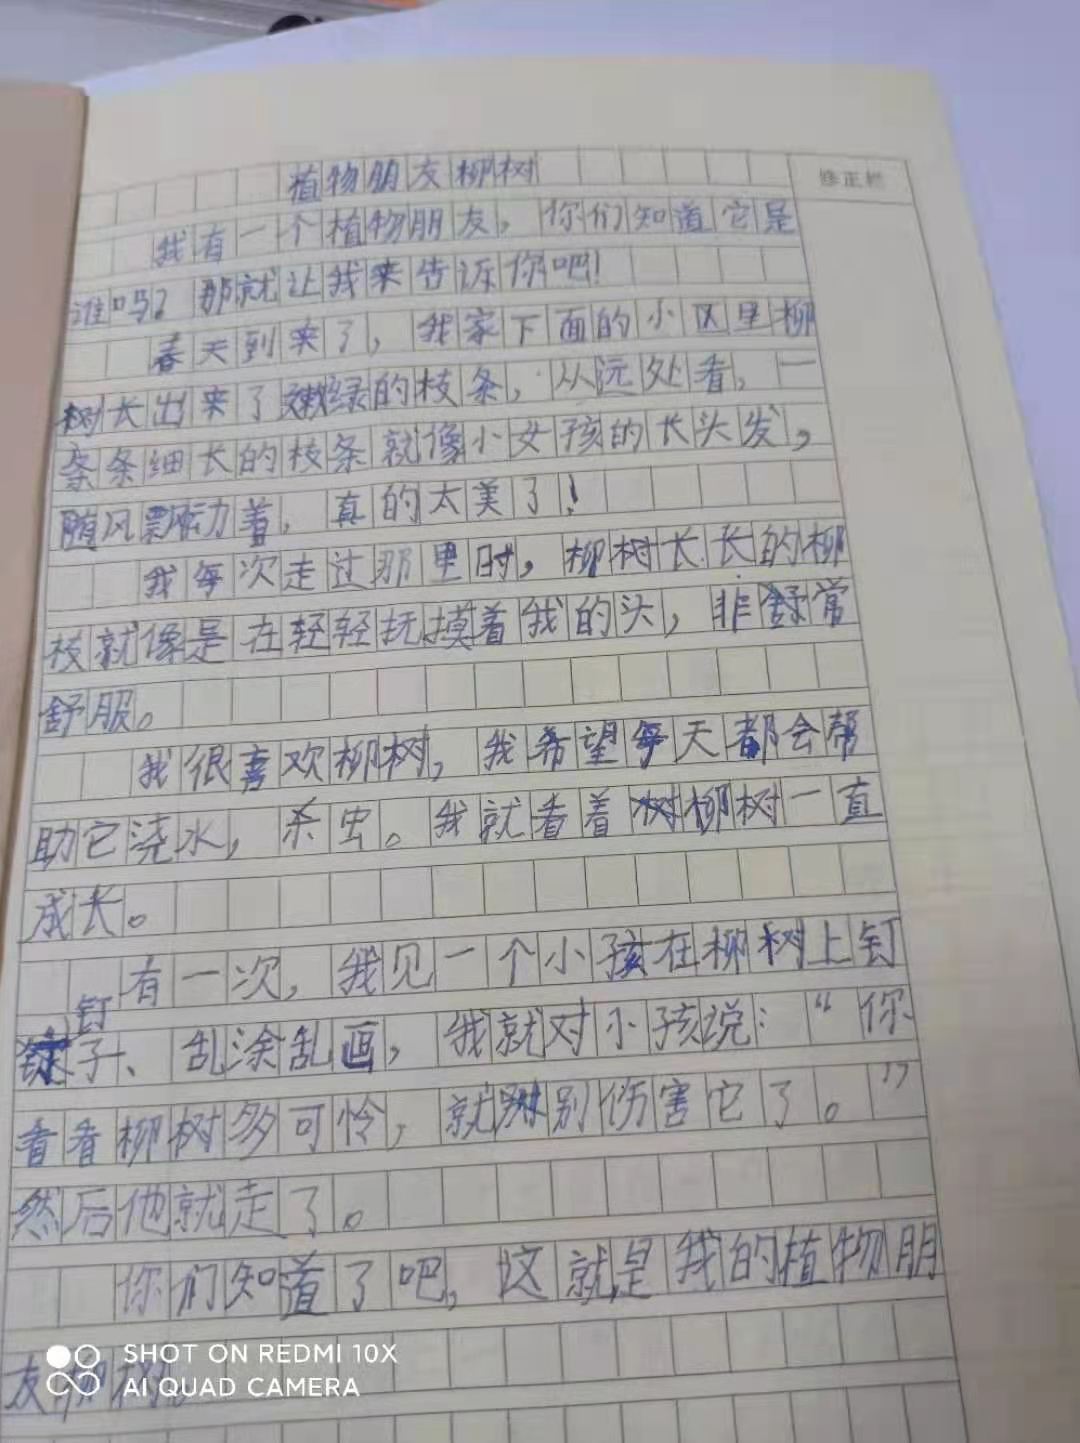 植物朋友柳树
修正栏
我有一个植物朋友，你们知道它是
谁吗？那就让我来告诉你吧！
春天到来了，我家下面的小区里柳
树长出来了嫩绿的枝条，从远处看，一
条条细长的枝条就像小女孩的长头发，
随风飘动着，真的太美了！
我每次走过那里时，柳树长长的柳
枝就像是在轻轻抚摸着我的头，非常
舒服。
我很喜欢柳树，我希望每天都会帮
助它浇水，杀虫。我就看着柳树一直
成长。
有一次，我见一个小孩在柳树上钉
钉子、乱涂乱画，我就对小孩说：“你
看看柳树多可怜，就别伤害它了。”
然后他就走了。
你们知道了吧，这就是我的植物朋
友柳树。
SHOT ON REDMI 10X
AI QUAD CAMERA